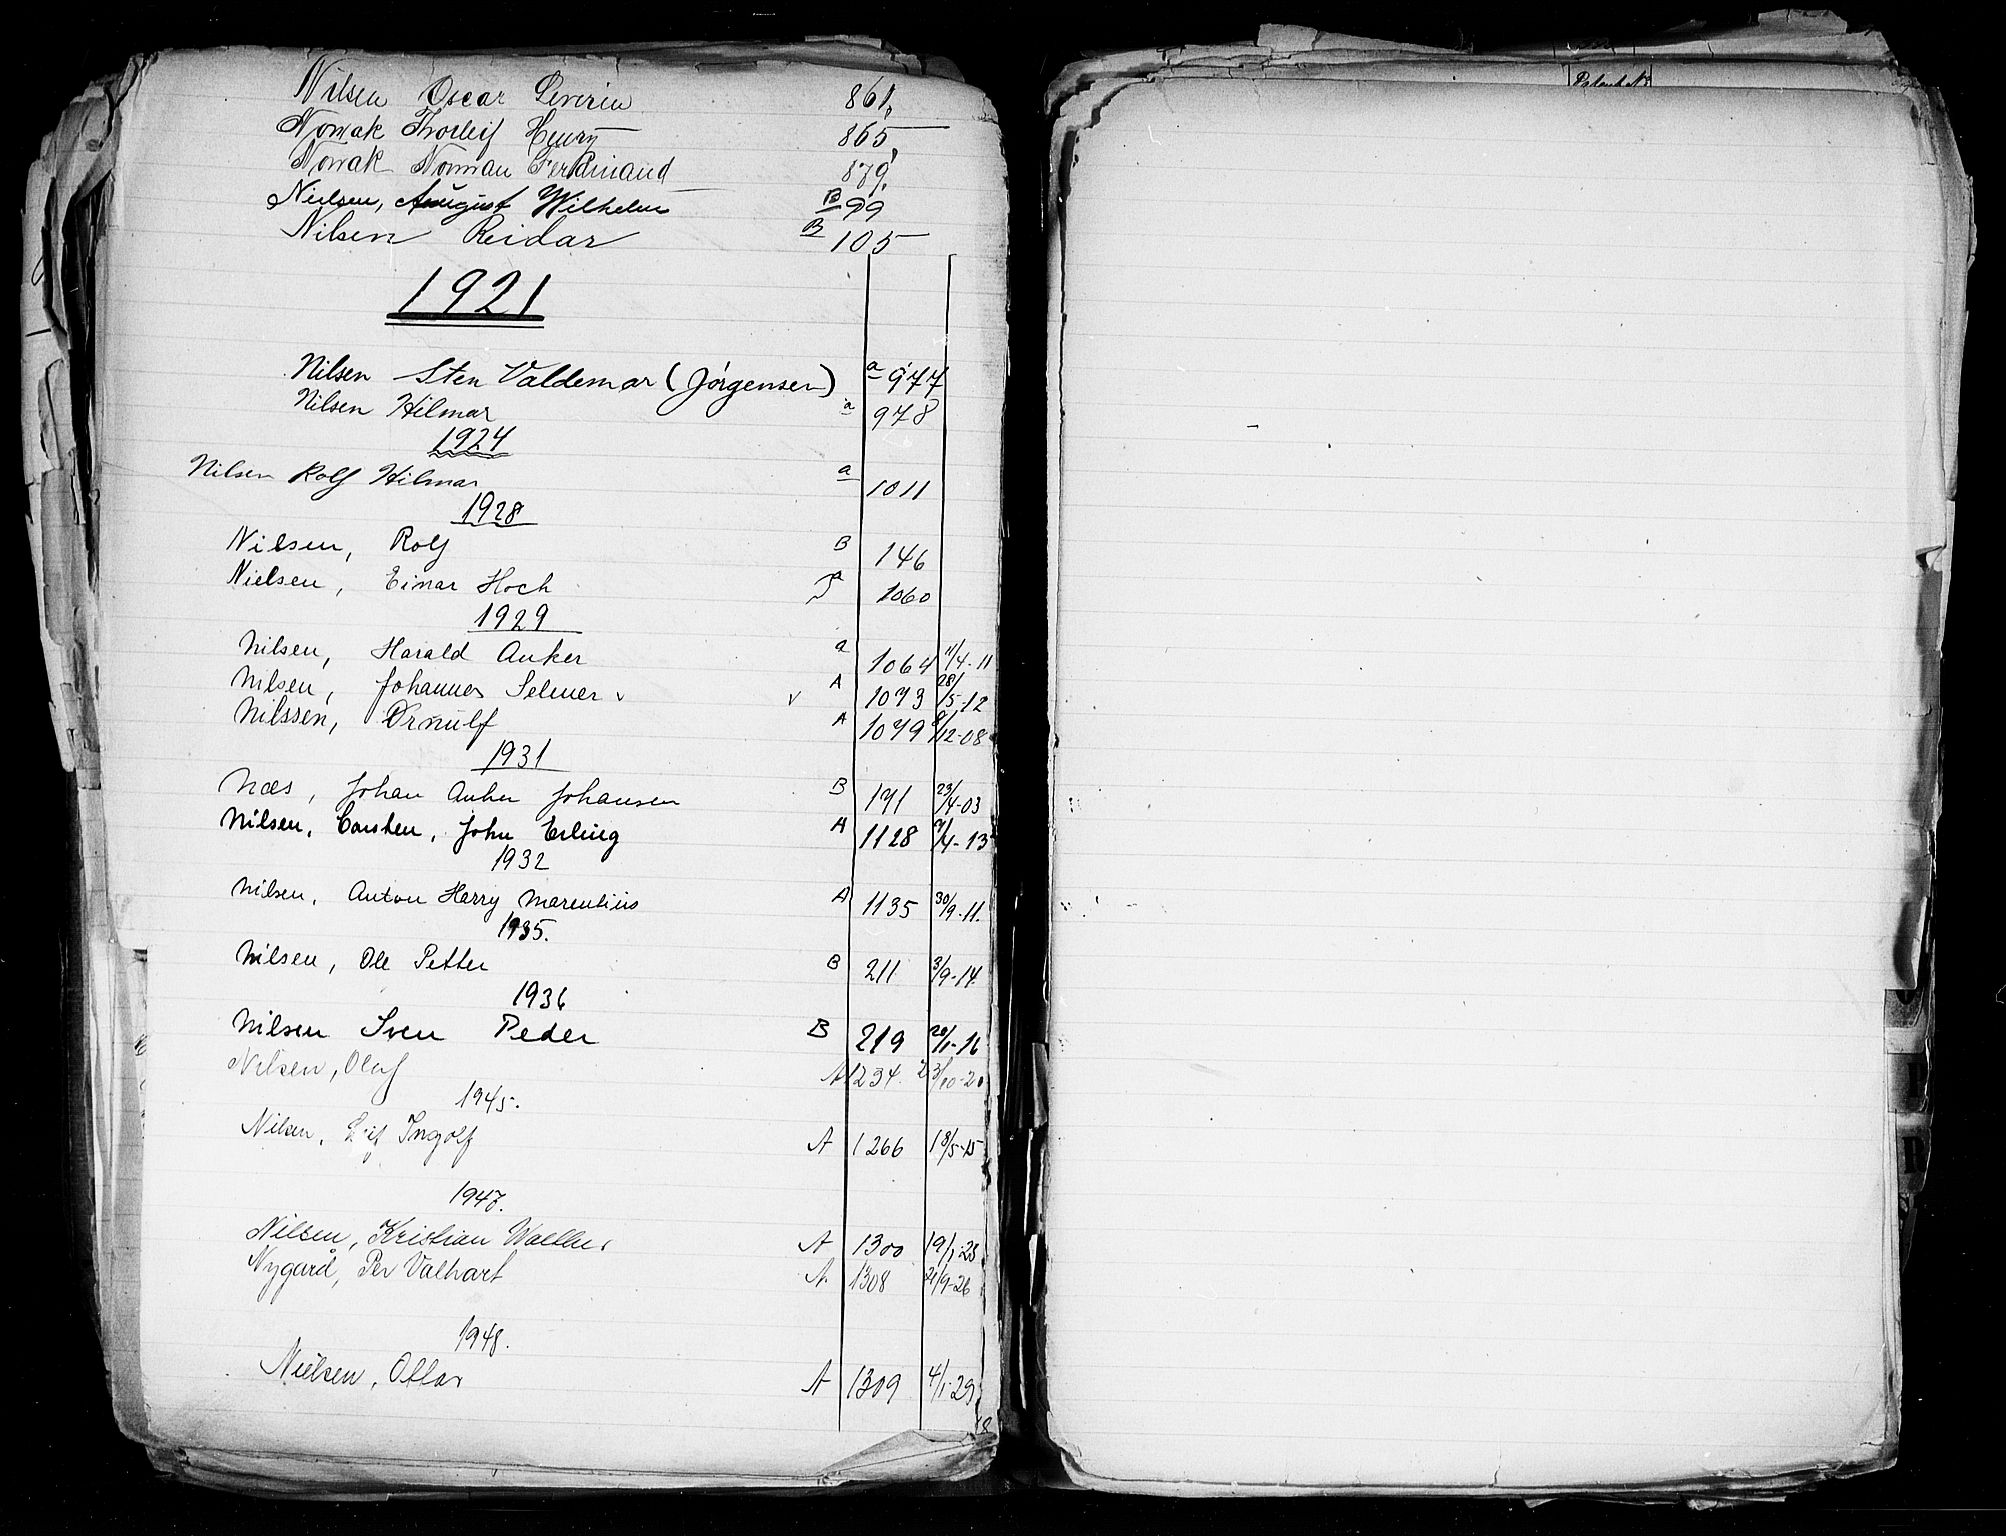 Nilsen Oscar Severin 861,
Nowak Thorleif Henry 865,
Nowak Norman Ferdinand 879,
Nielsen, August Wilhelm B 99
Nilsen Reidar B 105
1921
Nilsen Sten Valdemar (Jørgensen) a 977
Nilsen Hilmar a 978
1924
Nilsen Rolf Hilmar a 1011
1928
Nilsen, Rolf B 146
Nielsen, Einar Hoch a 1060
1929
Nilsen, Harald Anker a 1064 11/4-11
Nilsen, Johannes Selmer v v A 1073 28/5-12
Nilssen, Ørnulf A 1079 8/12-08
1931
Næs, Johan Anker Johansen B 171 23/4-03
Nilsen, Carsten, John Erling A 1128 9/4-13
1932
Nilsen, Anton Harry Marentius A 1135 30/9-11.
1935.
Nilsen, Ole Petter B 211 3/9-14.
1936
Nilsen Sven Peder B 219 28/1-16
Nilsen, Olaf A 1234. 23/10-20
1945.
Nilsen, Leif Ingolf A 1266 18/5-15
1947.
Nilsen, Kristian A 1300 19/1-28
Nygård, Per Valhart A 1308 21/9-26
1948.
Nielsen, Ottar A 1309 4/1-29